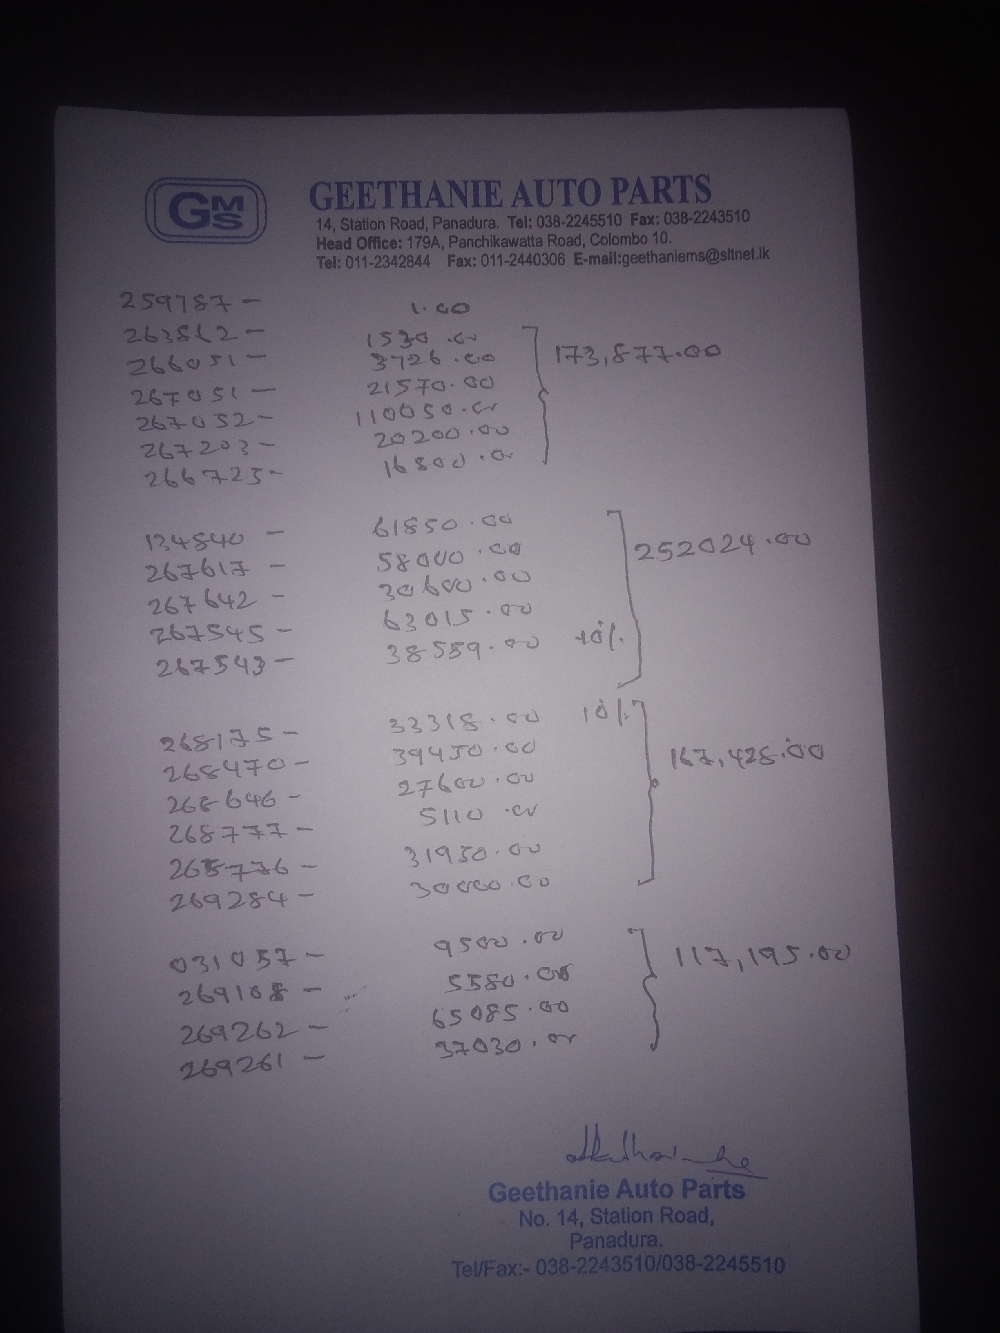 GMS
GEETHANIE AUTO PARTS
14, Station Road, Panadura. Tel: 038-2245510 Fax: 038-2243510
Head Office: 179A, Panchikawatta Road, Colombo 10.
Tel: 011-2342844 Fax: 011-2440306 E-mail:geethaniems@sltnet.lk
259787 - 1.00
263862 - 1530.00
266051 - 3726.00 173,877.00
267051 - 21570.00
267052 - 110050.00
267203 - 20200.00
266723 - 16800.00
134840 - 61850.00
267617 - 58000.00 252024.00
267642 - 30600.00
267545 - 63015.00
267543 - 38559.00 10%
268175 - 33318.00 10%
268470 - 39450.00 167,428.00
268646 - 27600.00
268777 - 5110.00
268776 - 31950.00
269284 - 30000.00
031057 - 9500.00 117,195.00
269108 - 5580.00
269262 - 65085.00
269261 - 37030.00
Geethanie Auto Parts
No. 14, Station Road,
Panadura.
Tel/Fax:- 038-2243510/038-2245510